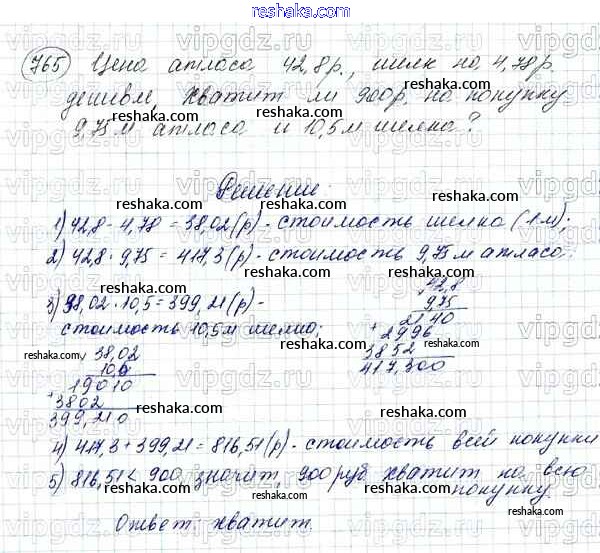 765) Цена атласа 42,8р., шелк на 4,78р
дешевле, хватит ли 900р. на покупку
9,75м атласа и 10,5м шелка?
Решение:
1) 42,8 - 4,78 = 38,02 (р) - стоимость шелка (1м);
2) 42,8 · 9,75 = 417,3 (р) - стоимость 9,75м атласа.
3) 38,02 · 10,5 = 399,21 (р) -
стоимость 10,5м шелка;
42,8
9,75
2140
+ 2996
3852
417,300
38,02
10,5
19010
+ 3802
399,210
4) 417,3 + 399,21 = 816,51 (р) - стоимость всей покупки
5) 816,51 < 900, значит, 900 руб. хватит на всю
покупку.
Ответ: хватит.
reshaka.com
vipgdz.ru